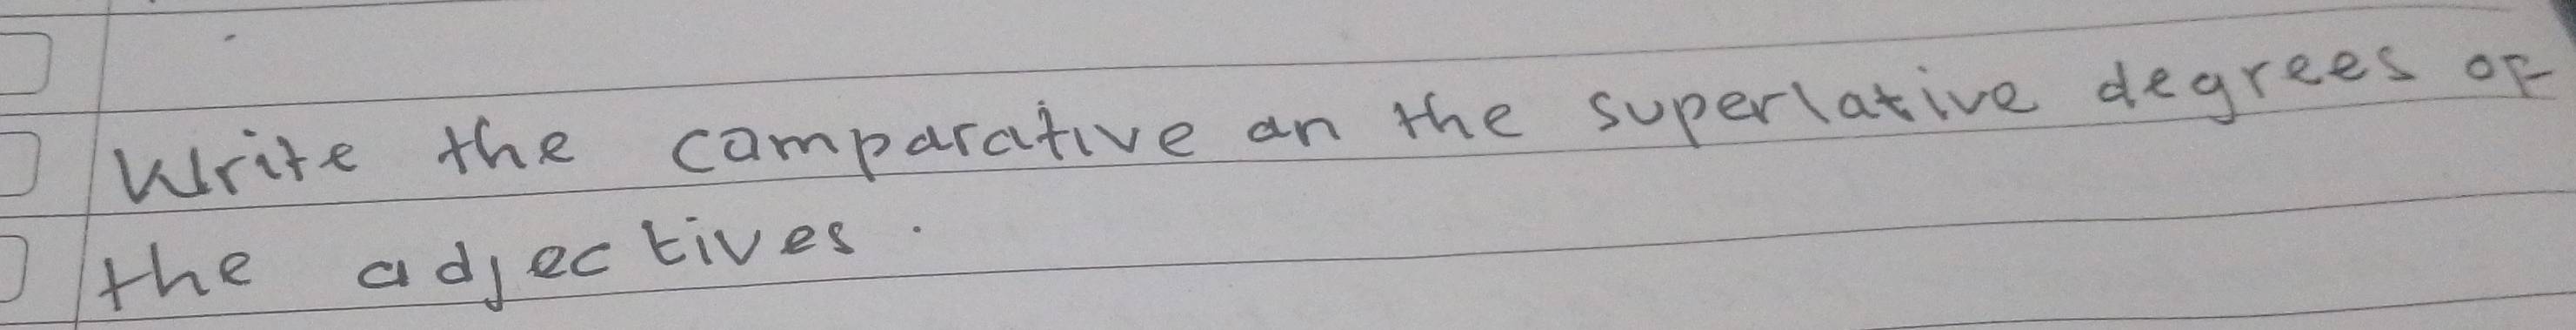 Write the comparative an the superlative degrees of
the adjectives.